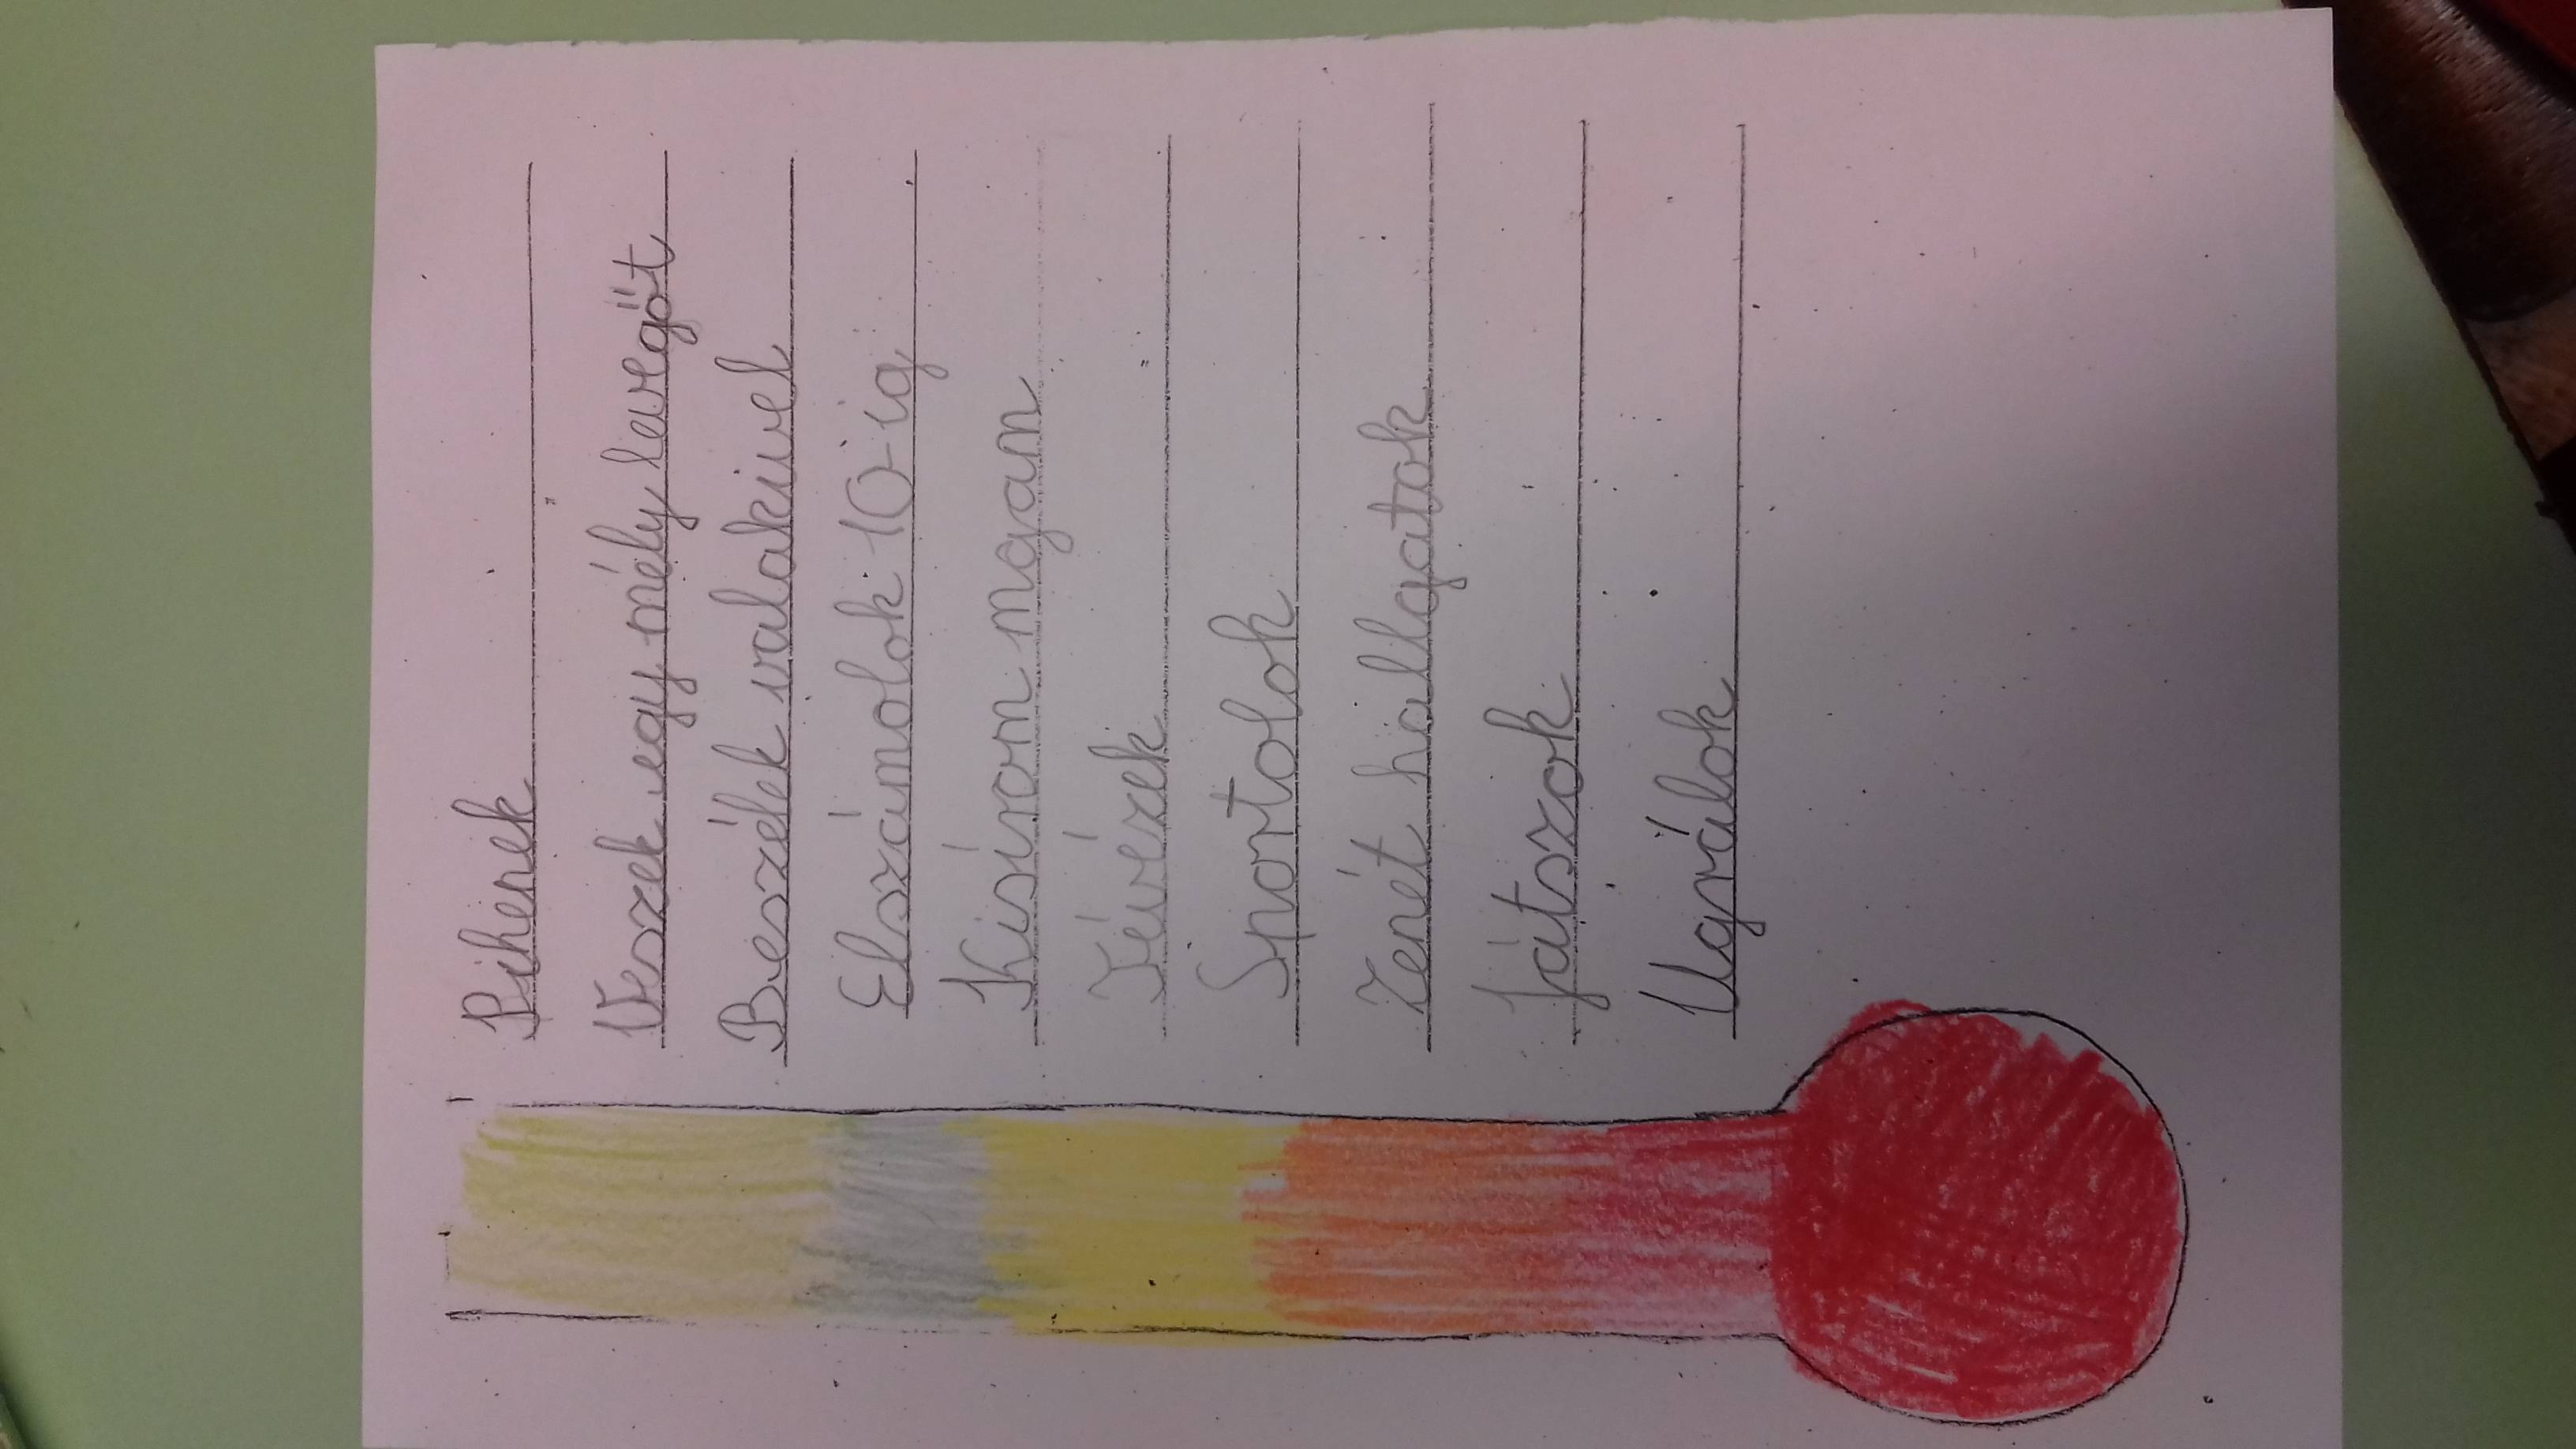 Pihenek
Veszek egy mély levegőt
Beszélek valakivel
Elszámolok 10-ig
Kisírom magam
Tévézek
Sportolok
Zenét hallgatok
Játszok
Ugrálok